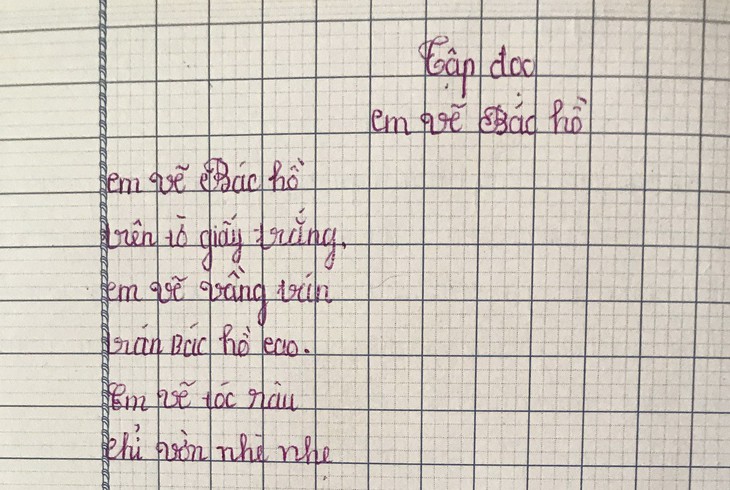 Tập dọc
em vẽ Bác hồ
em vẽ Bác hồ
trên tờ giấy trắng.
em vẽ vầng trán
trán Bác hồ cao.
Em vẽ tóc râu
chỉ vờn nhè nhẹ